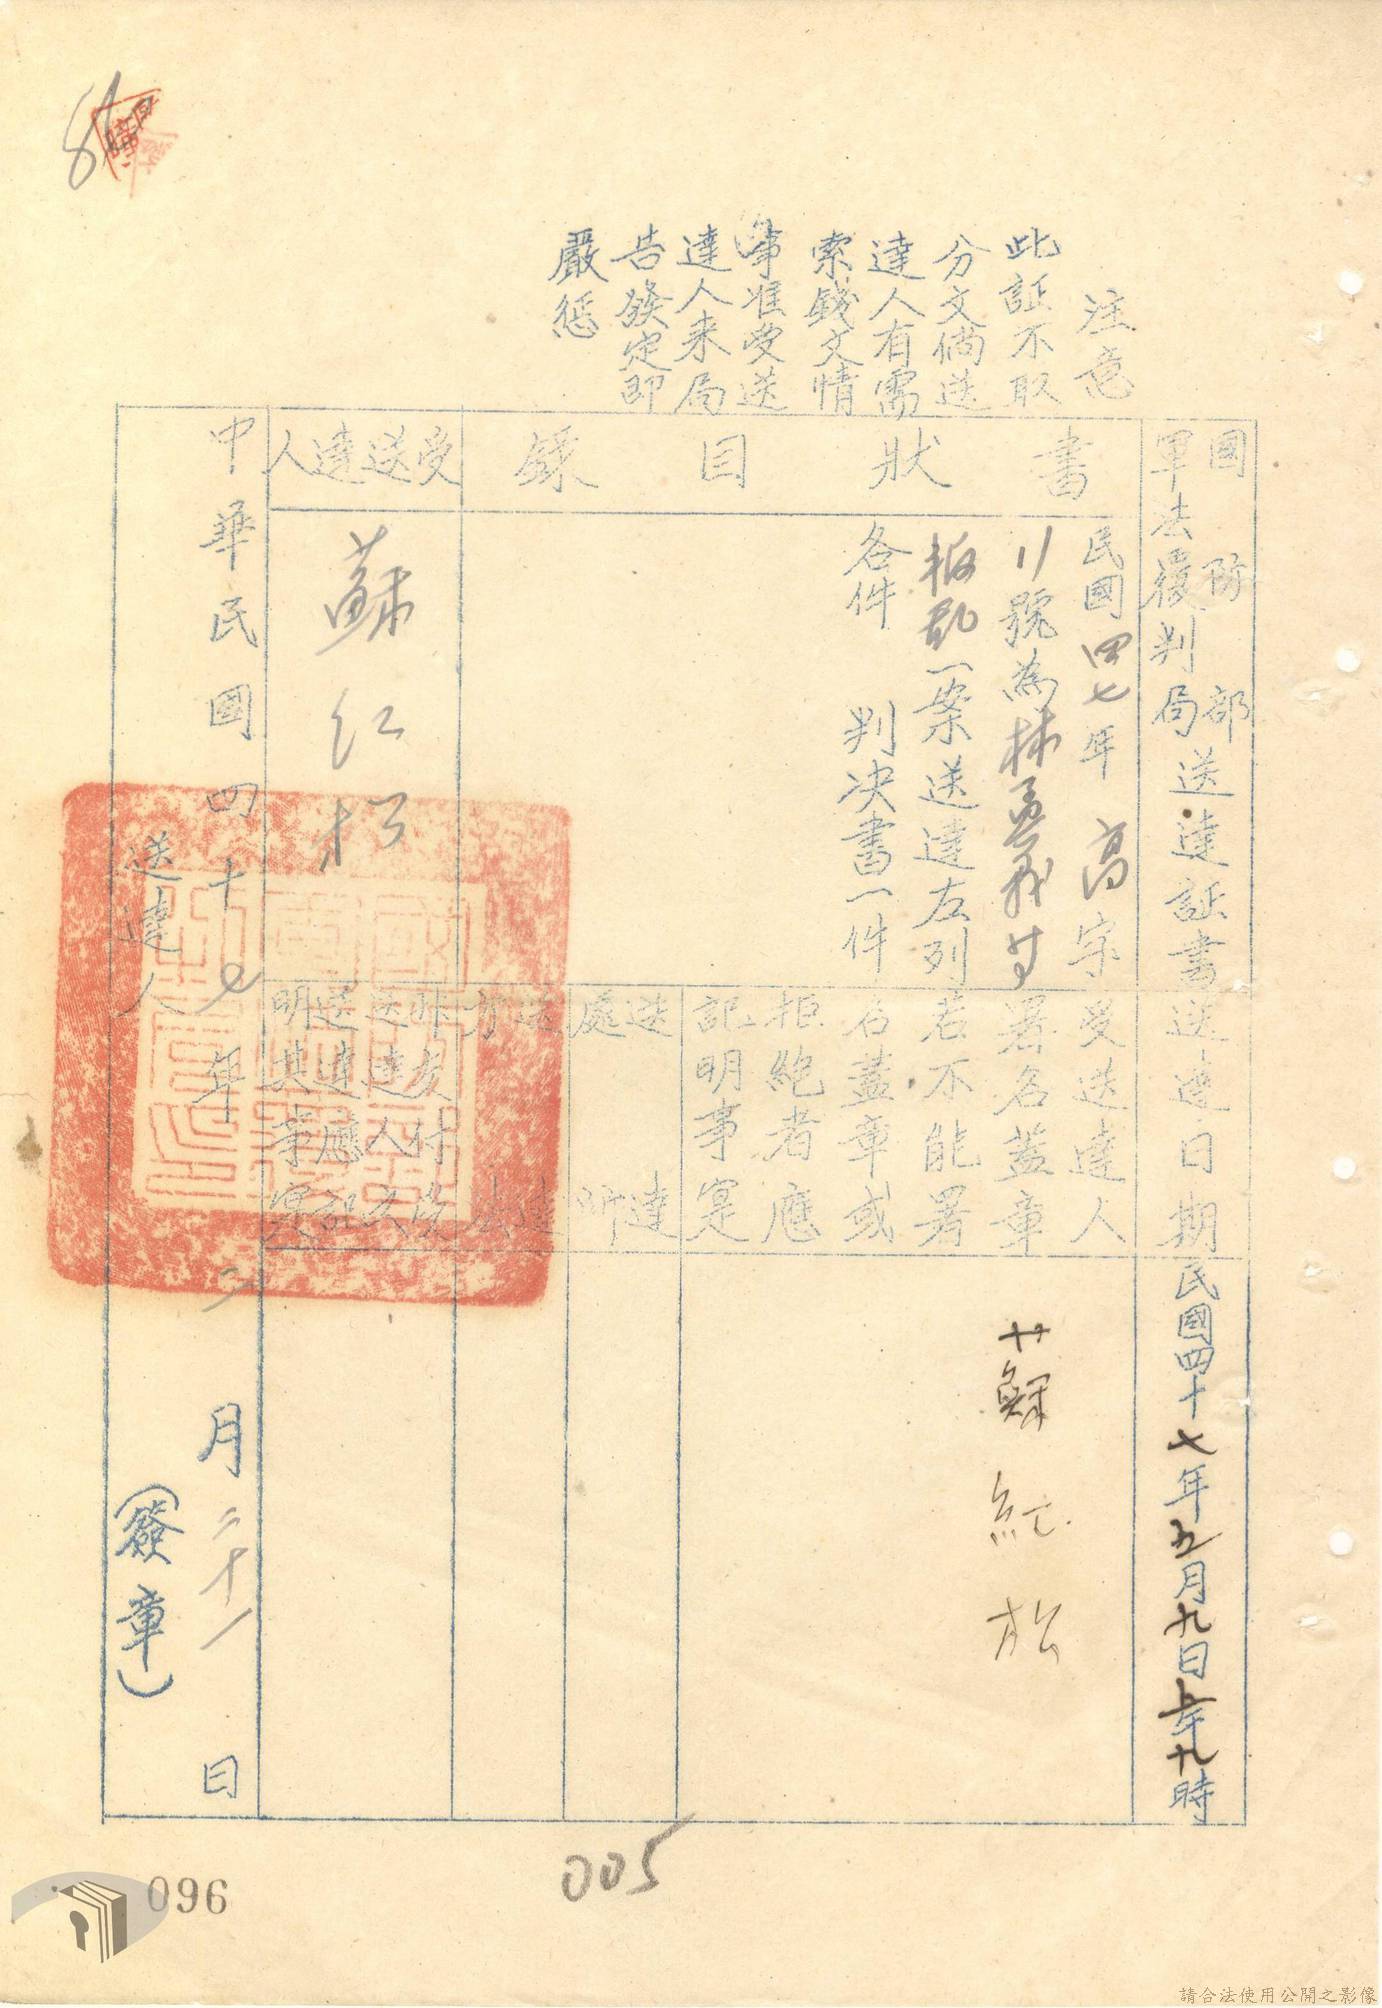 注意
此証不取
分文倘送
達人有需
索錢文情
事准受送
達人来局
告發定即
嚴懲
國防部
軍法覆判局送達証書
送達日期
民國四十七年五月九日上午九時
書狀目錄
民國四七年高字
11號為林孟義等
叛亂一案送達左列
各件
判决書一件
受送達人
署名蓋章
若不能署
名蓋章或
拒絶者應
記明事实
蘇紅松
送達
處所
送達
方法
受送達人
蘇红松
非交付
送達人
送達應記
明其事実
中華民國四十七年二月二十一日
送達人
(簽章)
005
096
請合法使用公開之影像